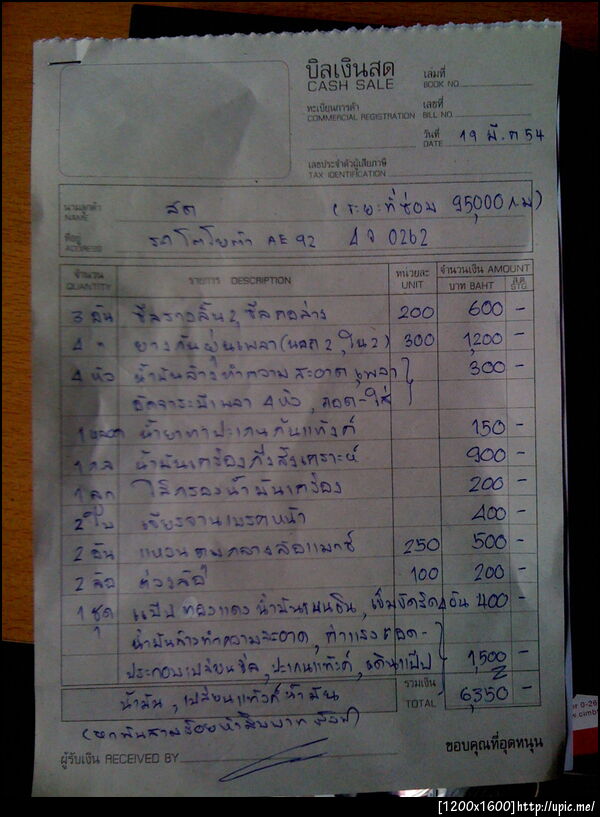 บิลเงินสด
CASH SALE
เล่มที่
BOOK NO.
ทะเบียนการค้า
COMMERCIAL REGISTRATION
เลขที่
BILL NO.
วันที่
DATE 19 มี.ค 54
เลขประจำตัวผู้เสียภาษี
TAX IDENTIFICATION
นามลูกค้า
NAME สด (ระยะที่ซ่อม 95,000 กม)
ที่อยู่
ADDRESS รถ โตโยต้า AE 92 0262
จำนวน
QUANTITY
รายการ DESCRIPTION
หน่วยละ
UNIT
จำนวนเงิน AMOUNT
บาท BAHT
ส.ต.
STG.
3 อัน ซีลราวลิ้น 2, ซีลคอล่าง 200 600 -
4 " ยางกันฝุ่นเพลา (นอก 2, ใน 2) 300 1,200 -
4 หัว น้ำมันล้างทำความสะอาด, เพลา 300 -
อัดจาระบีเพลา 4 หัว, ถอด-ใส่
1 หลอด น้ำยาทาปะเก็นก้นแท้งค์ 150 -
1 กล น้ำมันเครื่องกึ่งสังเคราะห์ 900 -
1 ลูก ไส้กรองน้ำมันเครื่อง 200 -
2 ใบ เจียรจานเบรคหน้า 400 -
2 อัน แหวนตมกลางล้อแมกซ์ 250 500 -
2 ล้อ ถ่วงล้อ 100 200 -
1 ชุด แป๊ปทองแดงน้ำมันเบนซิน, เข็มขัดรัด 4 อัน 400 -
น้ำมันล้างทำความสะอาด, ค่าแรงถอด-
ประกอบเปลี่ยนซีล, ปะเก็นแท้งค์, เดินแป๊ป 1,500 -
น้ำมัน, เปลี่ยนแท้งค์น้ำมัน
รวมเงิน
TOTAL 6,350 -
(หกพันสามร้อยห้าสิบบาทถ้วน)
ผู้รับเงิน RECEIVED BY
ขอบคุณที่อุดหนุน
[1200x1600]http://upic.me/